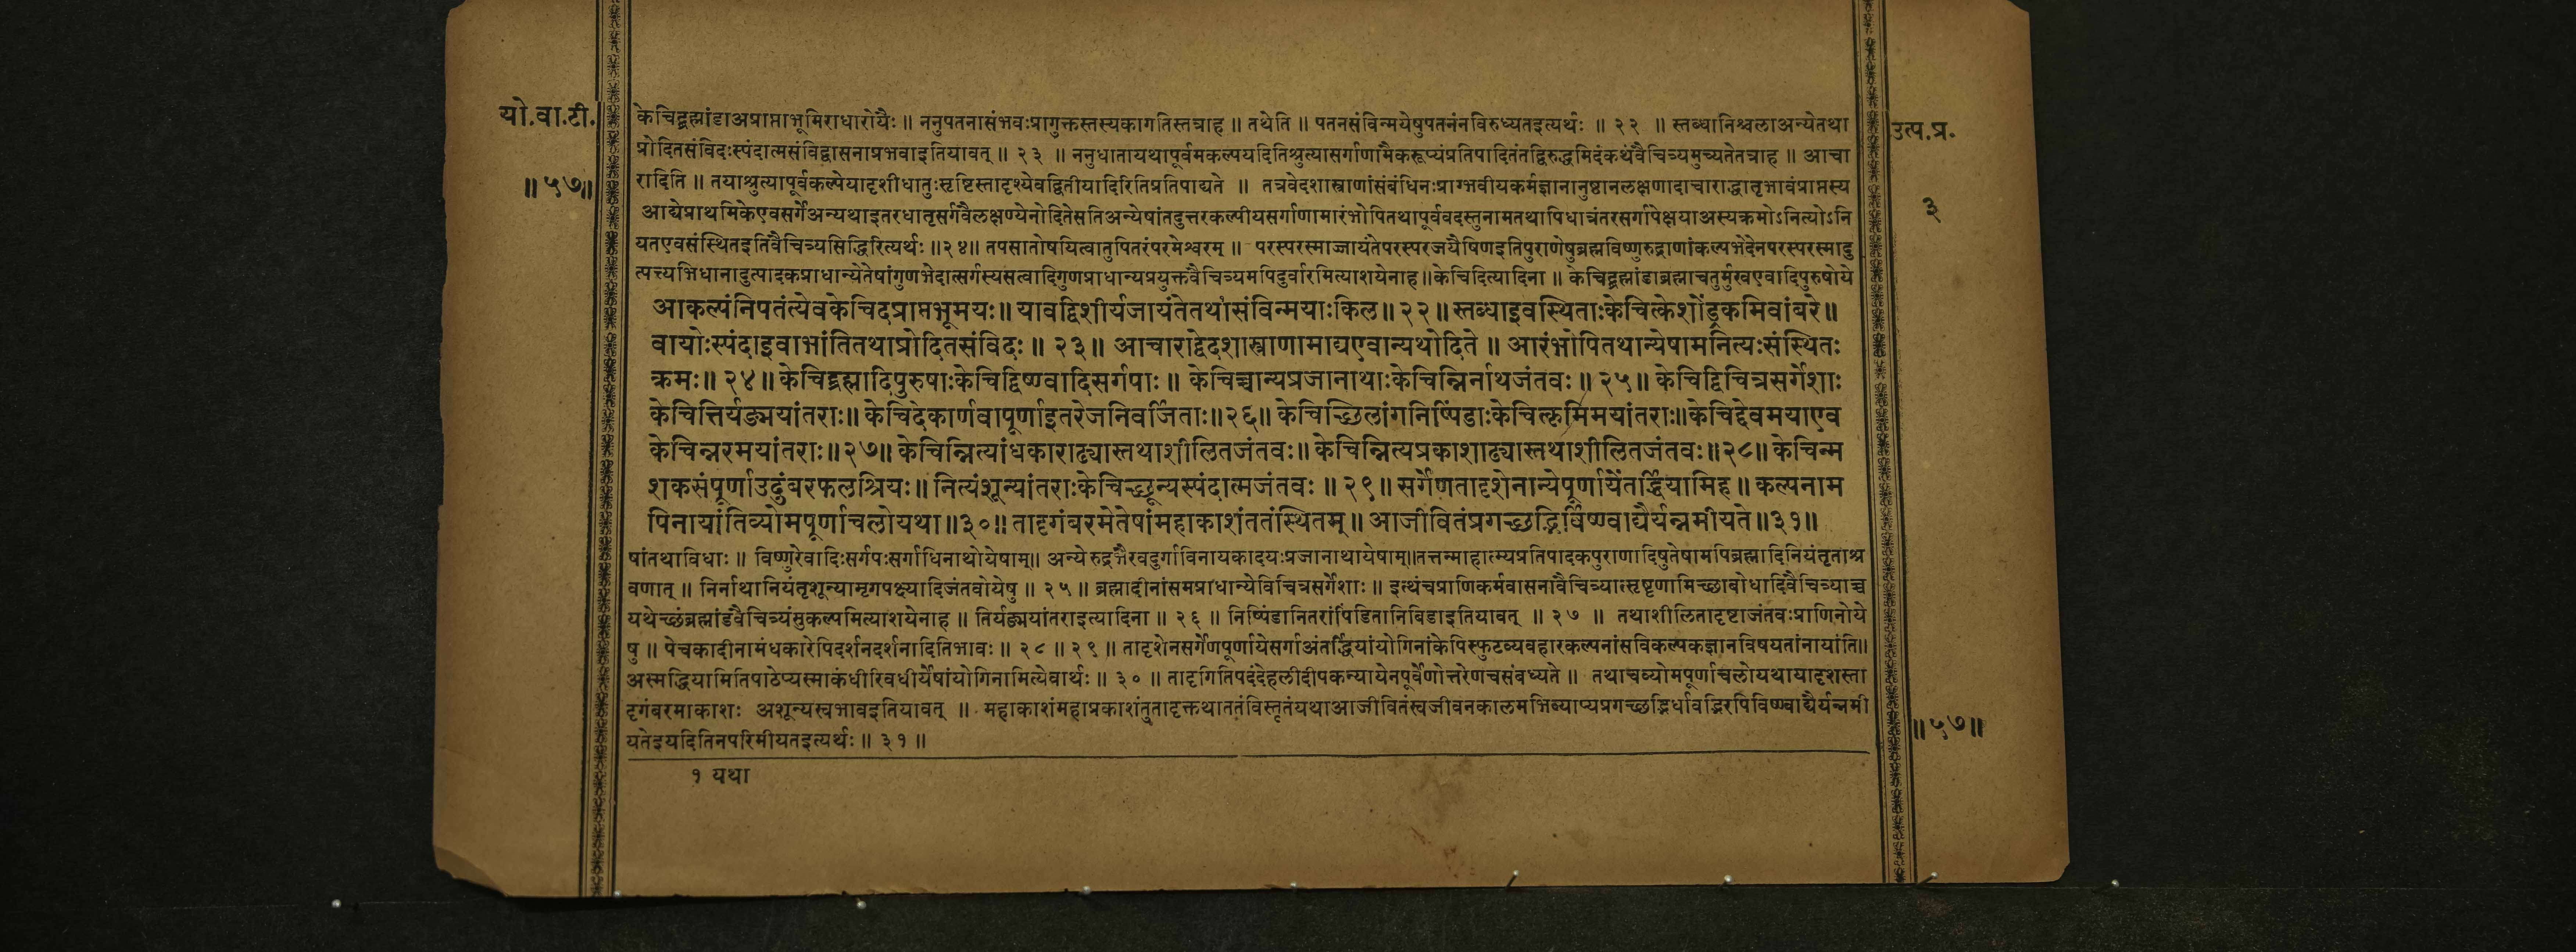 यो.वा.टी.
॥५७॥
केचिद्ब्रह्मांडाअप्राप्ताभूमिराधारोयैः ॥ ननुपतनासंभवःप्रागुक्तस्तस्यकागतिस्तत्राह ॥ तथेति ॥ पतनसंविन्मयेषुपतनंनविरुध्यतइत्यर्थः ॥ २२ ॥ स्तब्धानिश्चलाअन्येतथा
प्रोदितसंविदःस्पंदात्मसंविद्वासनाप्रभवाइतियावत् ॥ २३ ॥ ननुधातायथापूर्वमकल्पयदितिश्रुत्यासर्गाणामैकरूप्यंप्रतिपादितंतद्विरुद्धमिदंकथंवैचित्र्यमुच्यतेतत्राह ॥ आचा
रादिति ॥ तयाश्रुत्यापूर्वकल्पेयादृशीधातुःसृष्टिस्तादृश्येवद्वितीयादिरितिप्रतिपाद्यते ॥ तत्रवेदशास्त्राणांसंबंधिनःप्राग्भवीयकर्मज्ञानानुष्ठानलक्षणादाचाराद्धातृभावंप्राप्तस्य
आद्येप्राथमिकेएवसर्गेअन्यथाइतरधातृसर्गवैलक्षण्येनोदितेसतिअन्येषांतदुत्तरकल्पीयसर्गाणामारंभोपितथापूर्ववदस्तुनामतथापिधात्रंतरसर्गापेक्षयाअस्यक्रमोऽनित्योऽनि
यतएवसंस्थितइतिवैचित्र्यसिद्धिरित्यर्थः ॥२४॥ तपसातोषयित्वातुपितरंपरमेश्वरम् ॥ परस्परस्माज्जायंतेपरस्परजयैषिणइतिपुराणेषुब्रह्मविष्णुरुद्राणांकल्पभेदेनपरस्परस्मादु
त्पत्त्यभिधानादुत्पादकप्राधान्येतेषांगुणभेदात्सर्गस्यसत्वादिगुणप्राधान्यप्रयुक्तवैचित्र्यमपिदुर्वारमित्याशयेनाह॥केचिदित्यादिना ॥ केचिद्ब्रह्मांडाब्रह्माचतुर्मुखएवादिपुरुषोये
आकल्पंनिपतंत्येवकेचिदप्राप्तभूमयः॥ यावद्विशीर्यजायंतेतथा१संविन्मयाःकिल॥ २२॥ स्तब्धाइवस्थिताःकेचित्केशोंड्रकमिवांबरे॥
वायोःस्पंदाइवाभांतितथाप्रोदितसंविदः॥ २३॥ आचाराद्वेदशास्त्राणामाद्यएवान्यथोदिते ॥ आरंभोपितथान्येषामनित्यःसंस्थितः
क्रमः॥ २४॥ केचिद्ब्रह्मादिपुरुषाःकेचिद्विष्ण्वादिसर्गपाः॥ केचिच्चान्यप्रजानाथाःकेचिन्निर्नाथजंतवः॥ २५॥ केचिद्विचित्रसर्गेशाः
केचित्तिर्यङ्मयांतराः॥ केचिदेकार्णवापूर्णाइतरेजनिवर्जिताः॥२६॥ केचिच्छिलांगनिष्पिंडाःकेचित्कृमिमयांतराः॥केचिद्देवमयाएव
केचिन्नरमयांतराः॥२७॥ केचिन्नित्यांधकाराढ्यास्तथाशीलितजंतवः॥ केचिन्नित्यप्रकाशाढ्यास्तथाशीलितजंतवः॥२८॥ केचिन्म
शकसंपूर्णाउदुंबरफलश्रियः॥ नित्यंशून्यांतराःकेचिच्छून्यस्पंदात्मजंतवः ॥ २९॥ सर्गेणतादृशेनान्येपूर्णायेंतर्द्धियामिह॥ कल्पनाम
पिनायांतिव्योमपूर्णाचलोयथा॥३०॥ तादृगंबरमेतेषांमहाकाशंततंस्थितम्॥ आजीवितंप्रगच्छद्भिर्विष्ण्वाद्यैर्यन्नमीयते॥३१॥
षांतथाविधाः ॥ विष्णुरेवादिःसर्गपःसर्गाधिनाथोयेषाम्॥ अन्येरुद्रभैरवदुर्गाविनायकादयःप्रजानाथायेषाम्॥तत्तन्माहात्म्यप्रतिपादकपुराणादिषुतेषामपिब्रह्मादिनियंतृताश्र
वणात् ॥ निर्नाथानियंतृशून्यामृगपक्ष्यादिजंतवोयेषु ॥ २५ ॥ ब्रह्मादीनांसमप्राधान्येविचित्रसर्गेशाः ॥ इत्थंचप्राणिकर्मवासनावैचित्र्यात्सृष्टृणामिच्छाबोधादिवैचित्र्याच्च
यथेच्छंब्रह्मांडवैचित्र्यंसुकल्पमित्याशयेनाह ॥ तिर्यङ्मयांतराइत्यादिना ॥ २६ ॥ निष्पिंडानितरांपिंडितानिबिडाइतियावत् ॥ २७ ॥ तथाशीलितादृष्टाजंतवःप्राणिनोये
षु ॥ पेचकादीनामंधकारेपिदर्शनदर्शनादितिभावः ॥ २८ ॥ २९ ॥ तादृशेनसर्गेणपूर्णायेसर्गाअंतर्द्धियांयोगिनांकेपिस्फुटव्यवहारकल्पनांसविकल्पकज्ञानविषयतांनायांति॥
अस्मद्धियामितिपाठेप्यस्माकंधीरिवधीर्येषांयोगिनामित्येवार्थः ॥ ३० ॥ तादृगितिपदंदेहलीदीपकन्यायेनपूर्वेणोत्तरेणचसंबध्यते ॥ तथाचव्योमपूर्णाचलोयथायादृशस्ता
दृगंबरमाकाशः अशून्यस्वभावइतियावत् ॥ महाकाशंमहाप्रकाशंतुतादृक्तथाततंविस्तृतंयथाआजीवितंस्वजीवनकालमभिव्याप्यप्रगच्छद्भिर्धावद्भिरपिविष्ण्वाद्यैर्यन्नमी
यतेइयदितिनपरिमीयतइत्यर्थः ॥ ३१ ॥
१ यथा
उत्प.प्र.
३
॥५७॥